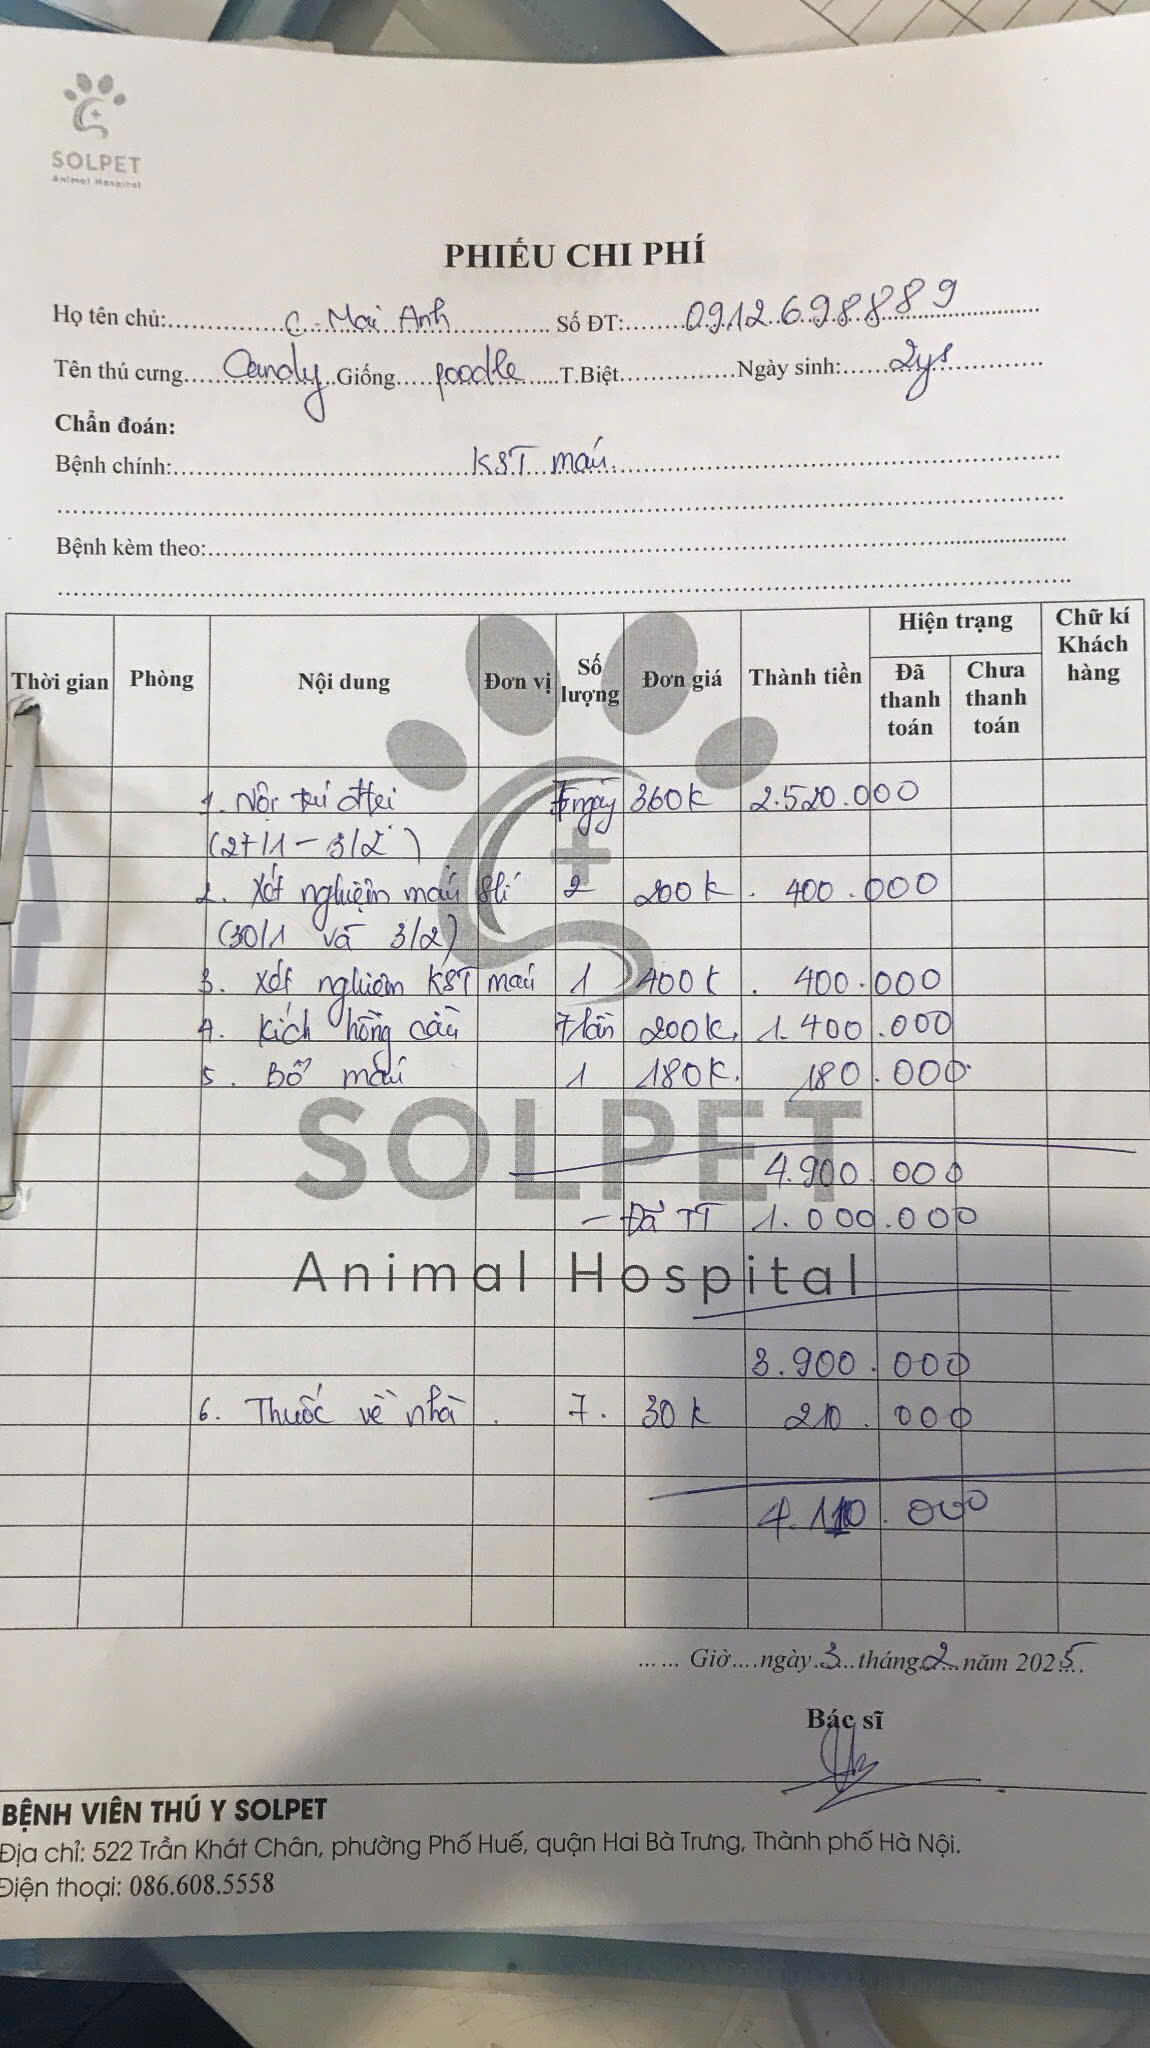 SOLPET
Animal Hospital
PHIẾU CHI PHÍ
Họ tên chủ: C. Mai Anh Số ĐT: 0912698889
Tên thú cưng Candy Giống poodle T.Biệt Ngày sinh: 2ys
Chẩn đoán:
Bệnh chính: KST máu
Bệnh kèm theo:
Thời gian Phòng Nội dung Đơn vị Số lượng Đơn giá Thành tiền Hiện trạng Đã thanh toán Chưa thanh toán Chữ kí Khách hàng
1. Nội trú 7 ngày 360k 2.520.000
(27/1 - 3/2)
2. Xét nghiệm máu 2 200k 400.000
(30/1 và 3/2)
3. Xét nghiệm KST máu 1 400k 400.000
4. Kích hồng cầu 7 lần 200k 1.400.000
5. Bổ máu 1 180k 180.000
SOLPET
4.900.000
- Đã TT 1.000.000
Animal Hospital
3.900.000
6. Thuốc về nhà 7 30k 210.000
4.110.000
Giờ ngày 3 tháng 2 năm 2025
Bác sĩ
BỆNH VIÊN THÚ Y SOLPET
Địa chỉ: 522 Trần Khát Chân, phường Phố Huế, quận Hai Bà Trưng, Thành phố Hà Nội.
Điện thoại: 086.608.5558